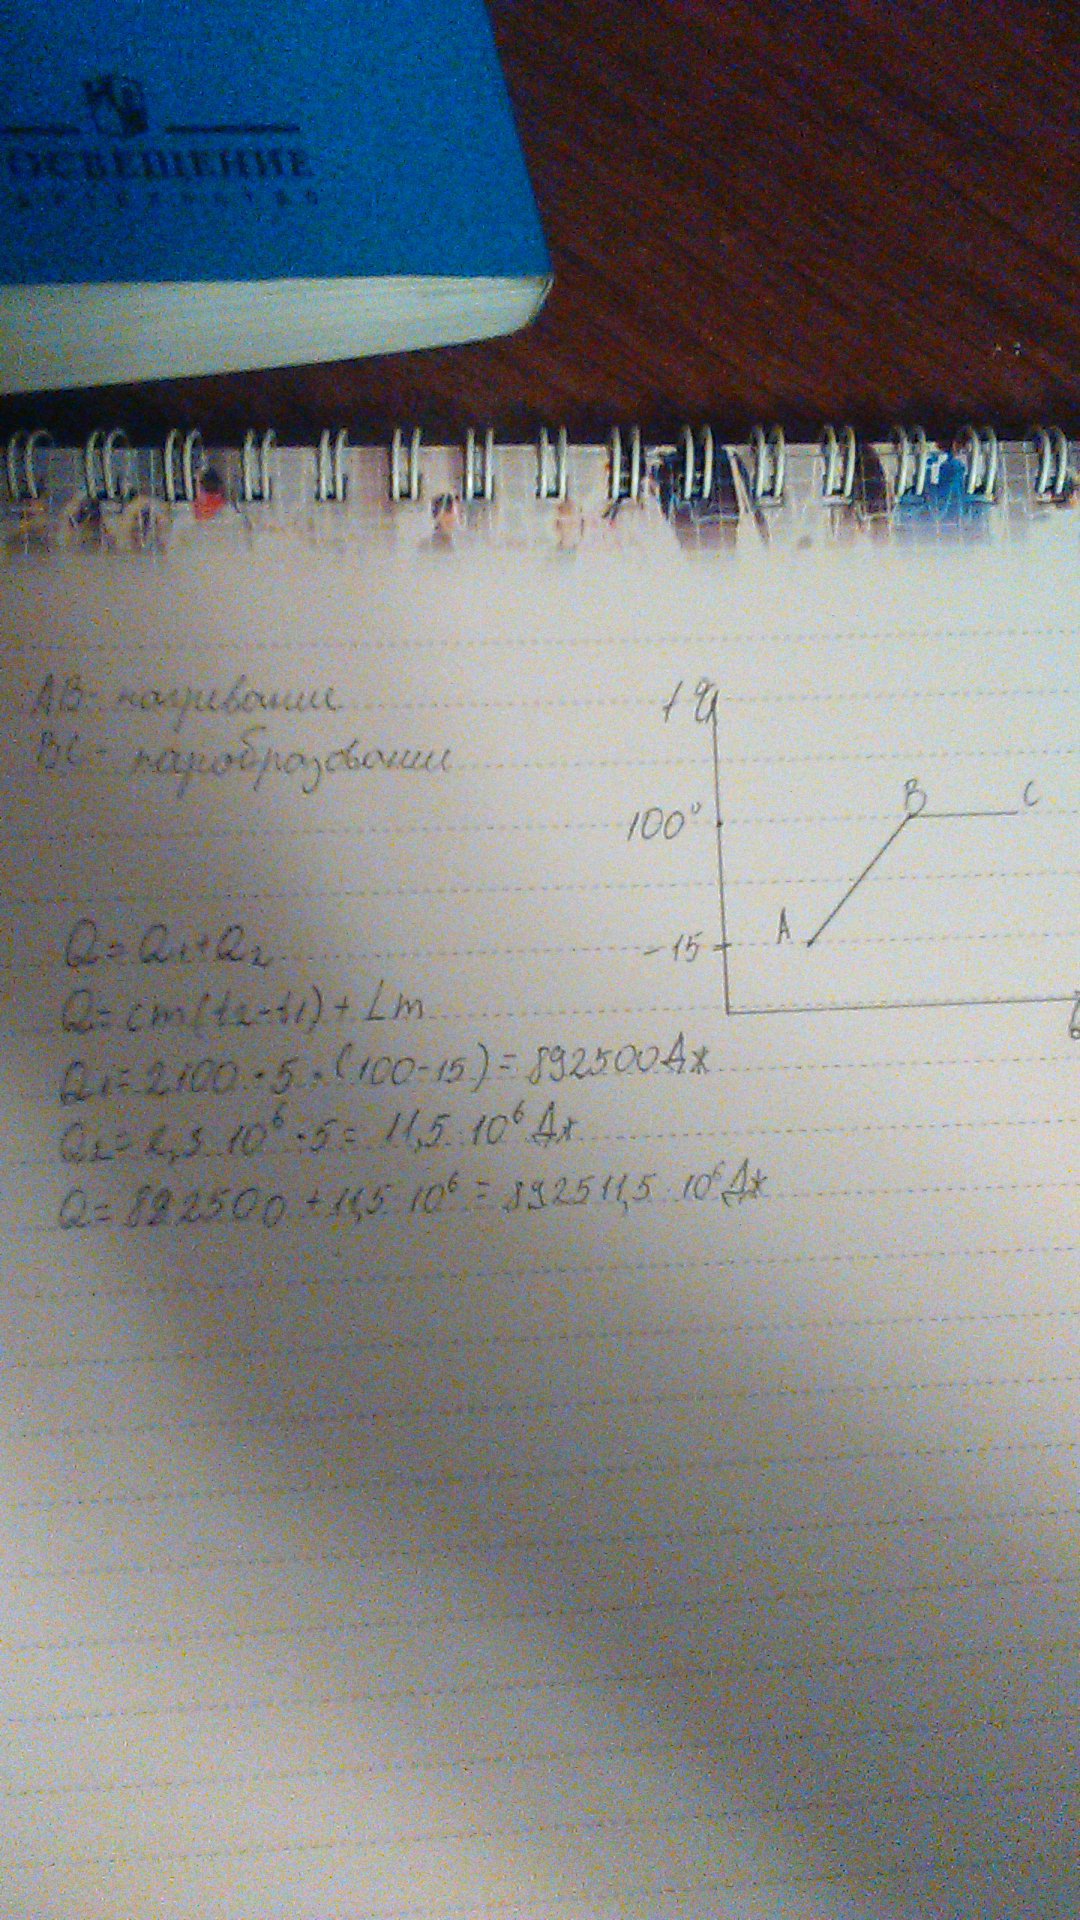 ОСВЕЩЕНИЕ
АВ - нагревание
ВС - парообразование
t °C
100°
-15
A
B
C
Q = Q₁ + Q₂
Q = cm(t₂-t₁) + Lm
Q₁ = 2100 · 5 · (100-15) = 892500 Дж
Q₂ = 2,3 · 10⁶ · 5 = 11,5 · 10⁶ Дж
Q = 892500 + 11,5 · 10⁶ = 892511,5 · 10⁶ Дж